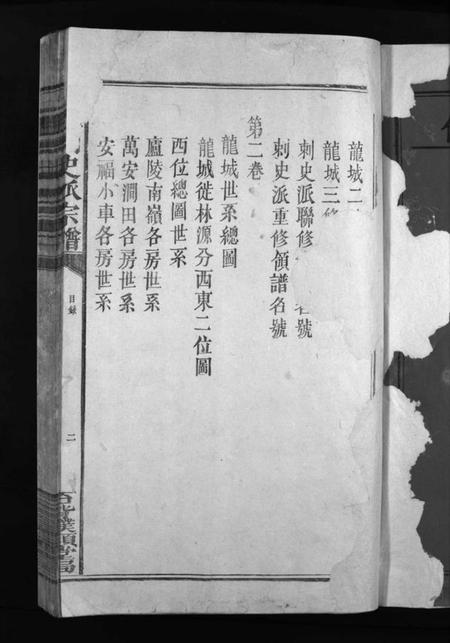 龍城二
龍城三修
刺史派聯修 名號
刺史派重修領譜名號
第二卷
龍城世系總圖
龍城徙林源分西東二位圖
西位總圖世系
廬陵南嶺各房世系
萬安澗田各房世系
安福小車各房世系
史派宗譜
目録
二